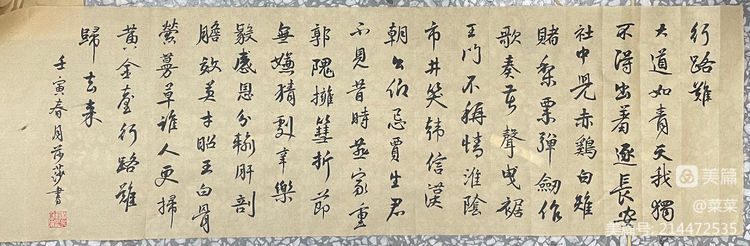 行路難
大道如青天我獨
不得出羞逐長安
社中兒赤鷄白雉
賭梨栗彈劍作
歌奏苦聲曳裾
王門不稱情淮陰
市井笑韓信漢
朝公忌賈生君
不見昔時燕家重
郭隗擁篲折節
無嫌猜劇辛樂
毅感恩分輸肝剖
膽效英才昭王白骨
縈蔓草誰人更掃
黃金臺行路難
歸去来
壬寅春月莎莎書
美篇
@菜菜
美篇号: 214472535